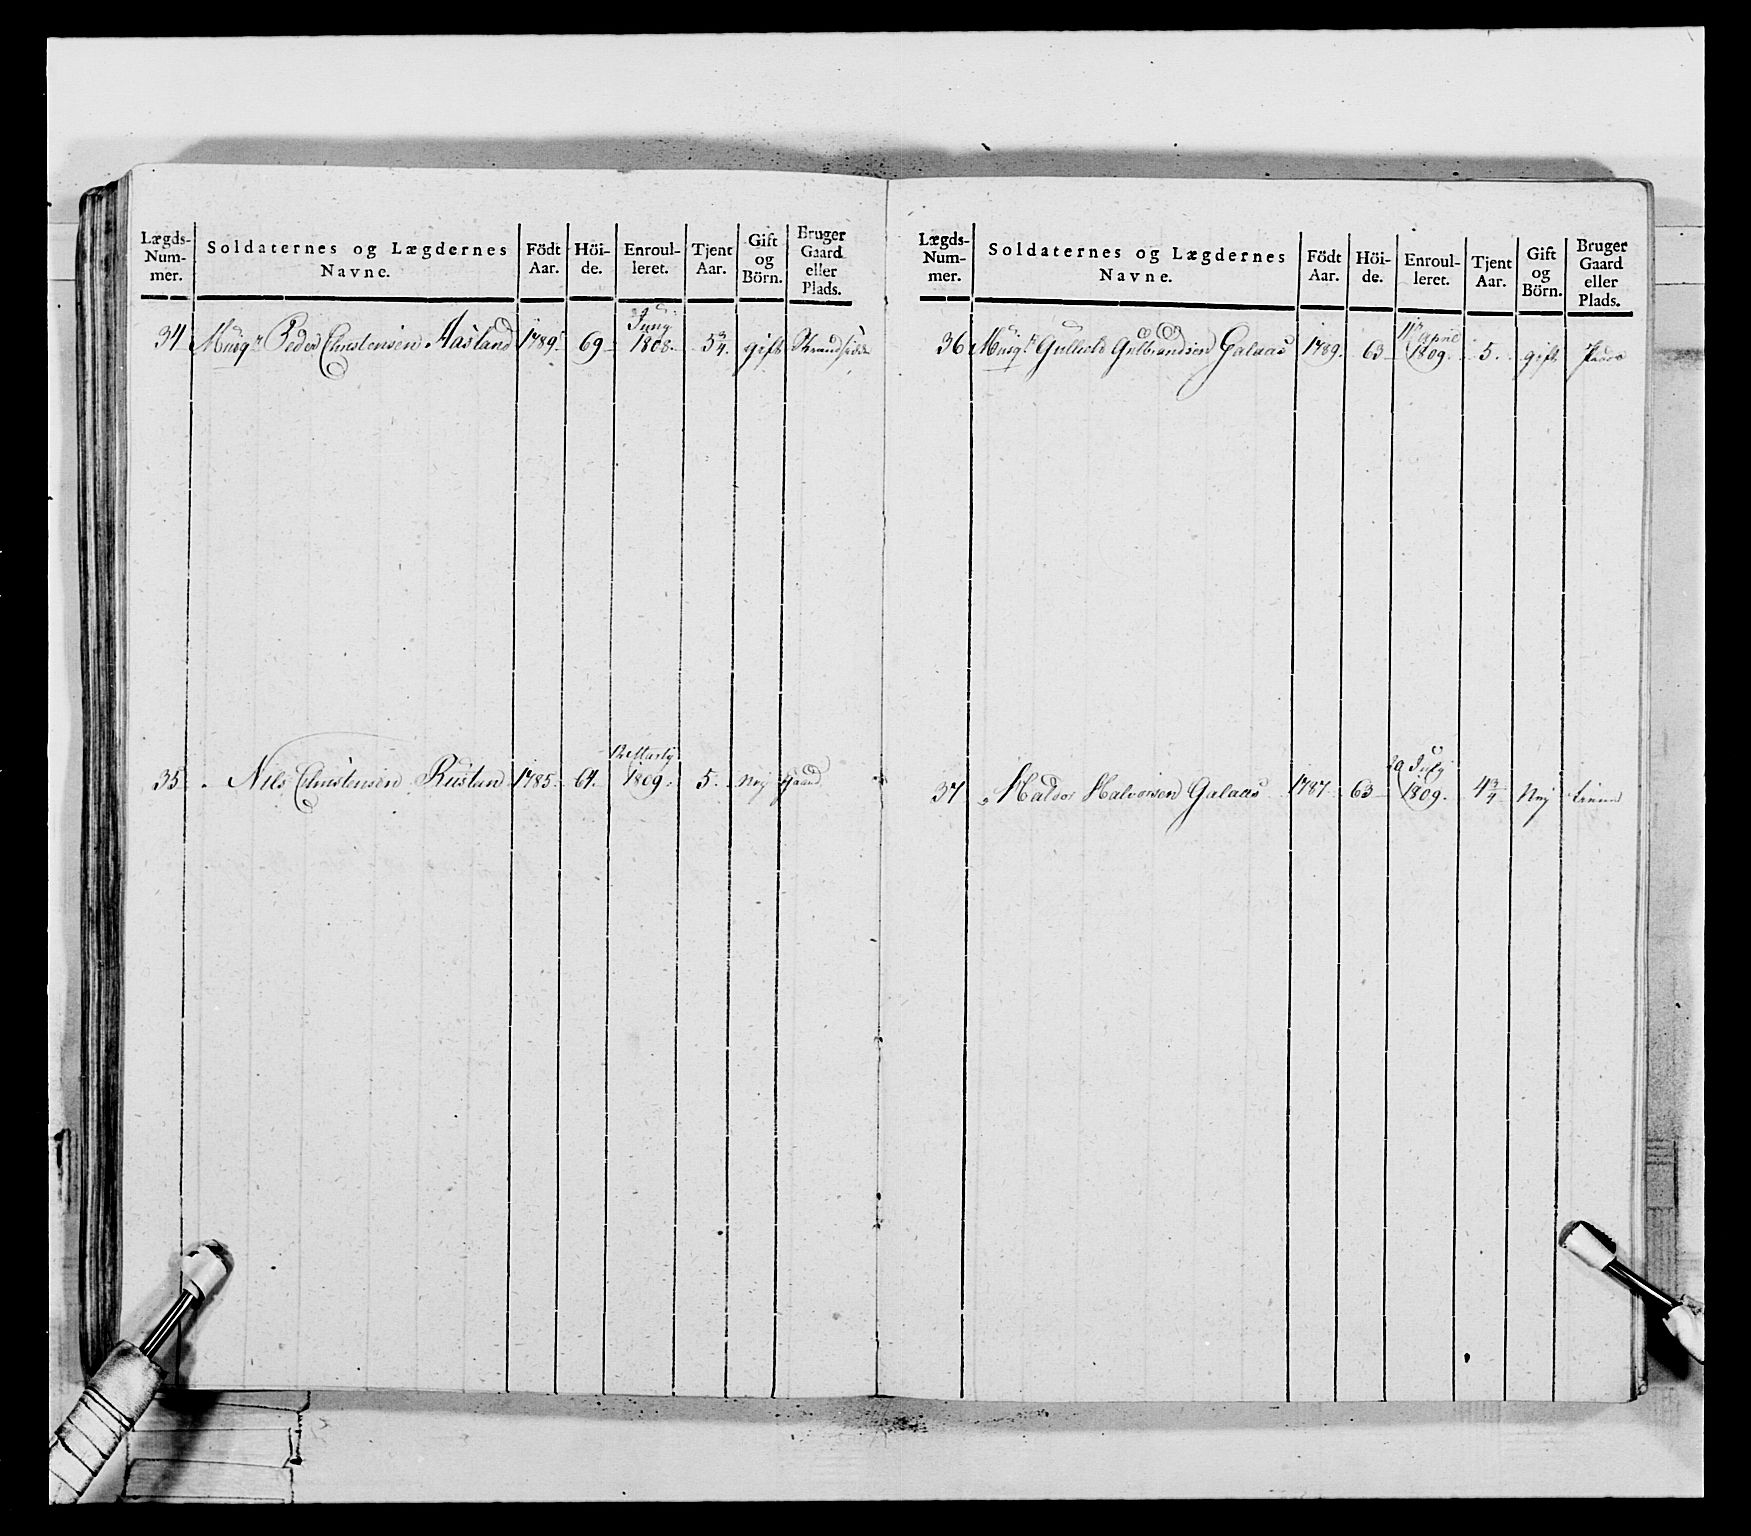 Lægds-Num-mer. Soldaternes og Lægdernes Navne. Födt Aar. Höi-de. Enroul-leret. Tjent Aar. Gift og Börn. Bruger Gaard eller Plads.
34 Musqr Peder Christensen Aasland 1789. 69 Juny 1808. 5 3/4. gift
35 Nils Christensen Rustan 1785. 64. Marty 1809. 5. Nej Gaard
Lægds-Num-mer. Soldaternes og Lægdernes Navne. Födt Aar. Höi-de. Enroul-leret. Tjent Aar. Gift og Börn. Bruger Gaard eller Plads.
36 Musqr Gulbrandsen Galaas 1789. 63 April 1809. 5. gift
37 Haldor Halvorsen Galaas 1787 63 29 July 1809. 4 3/4 Nej